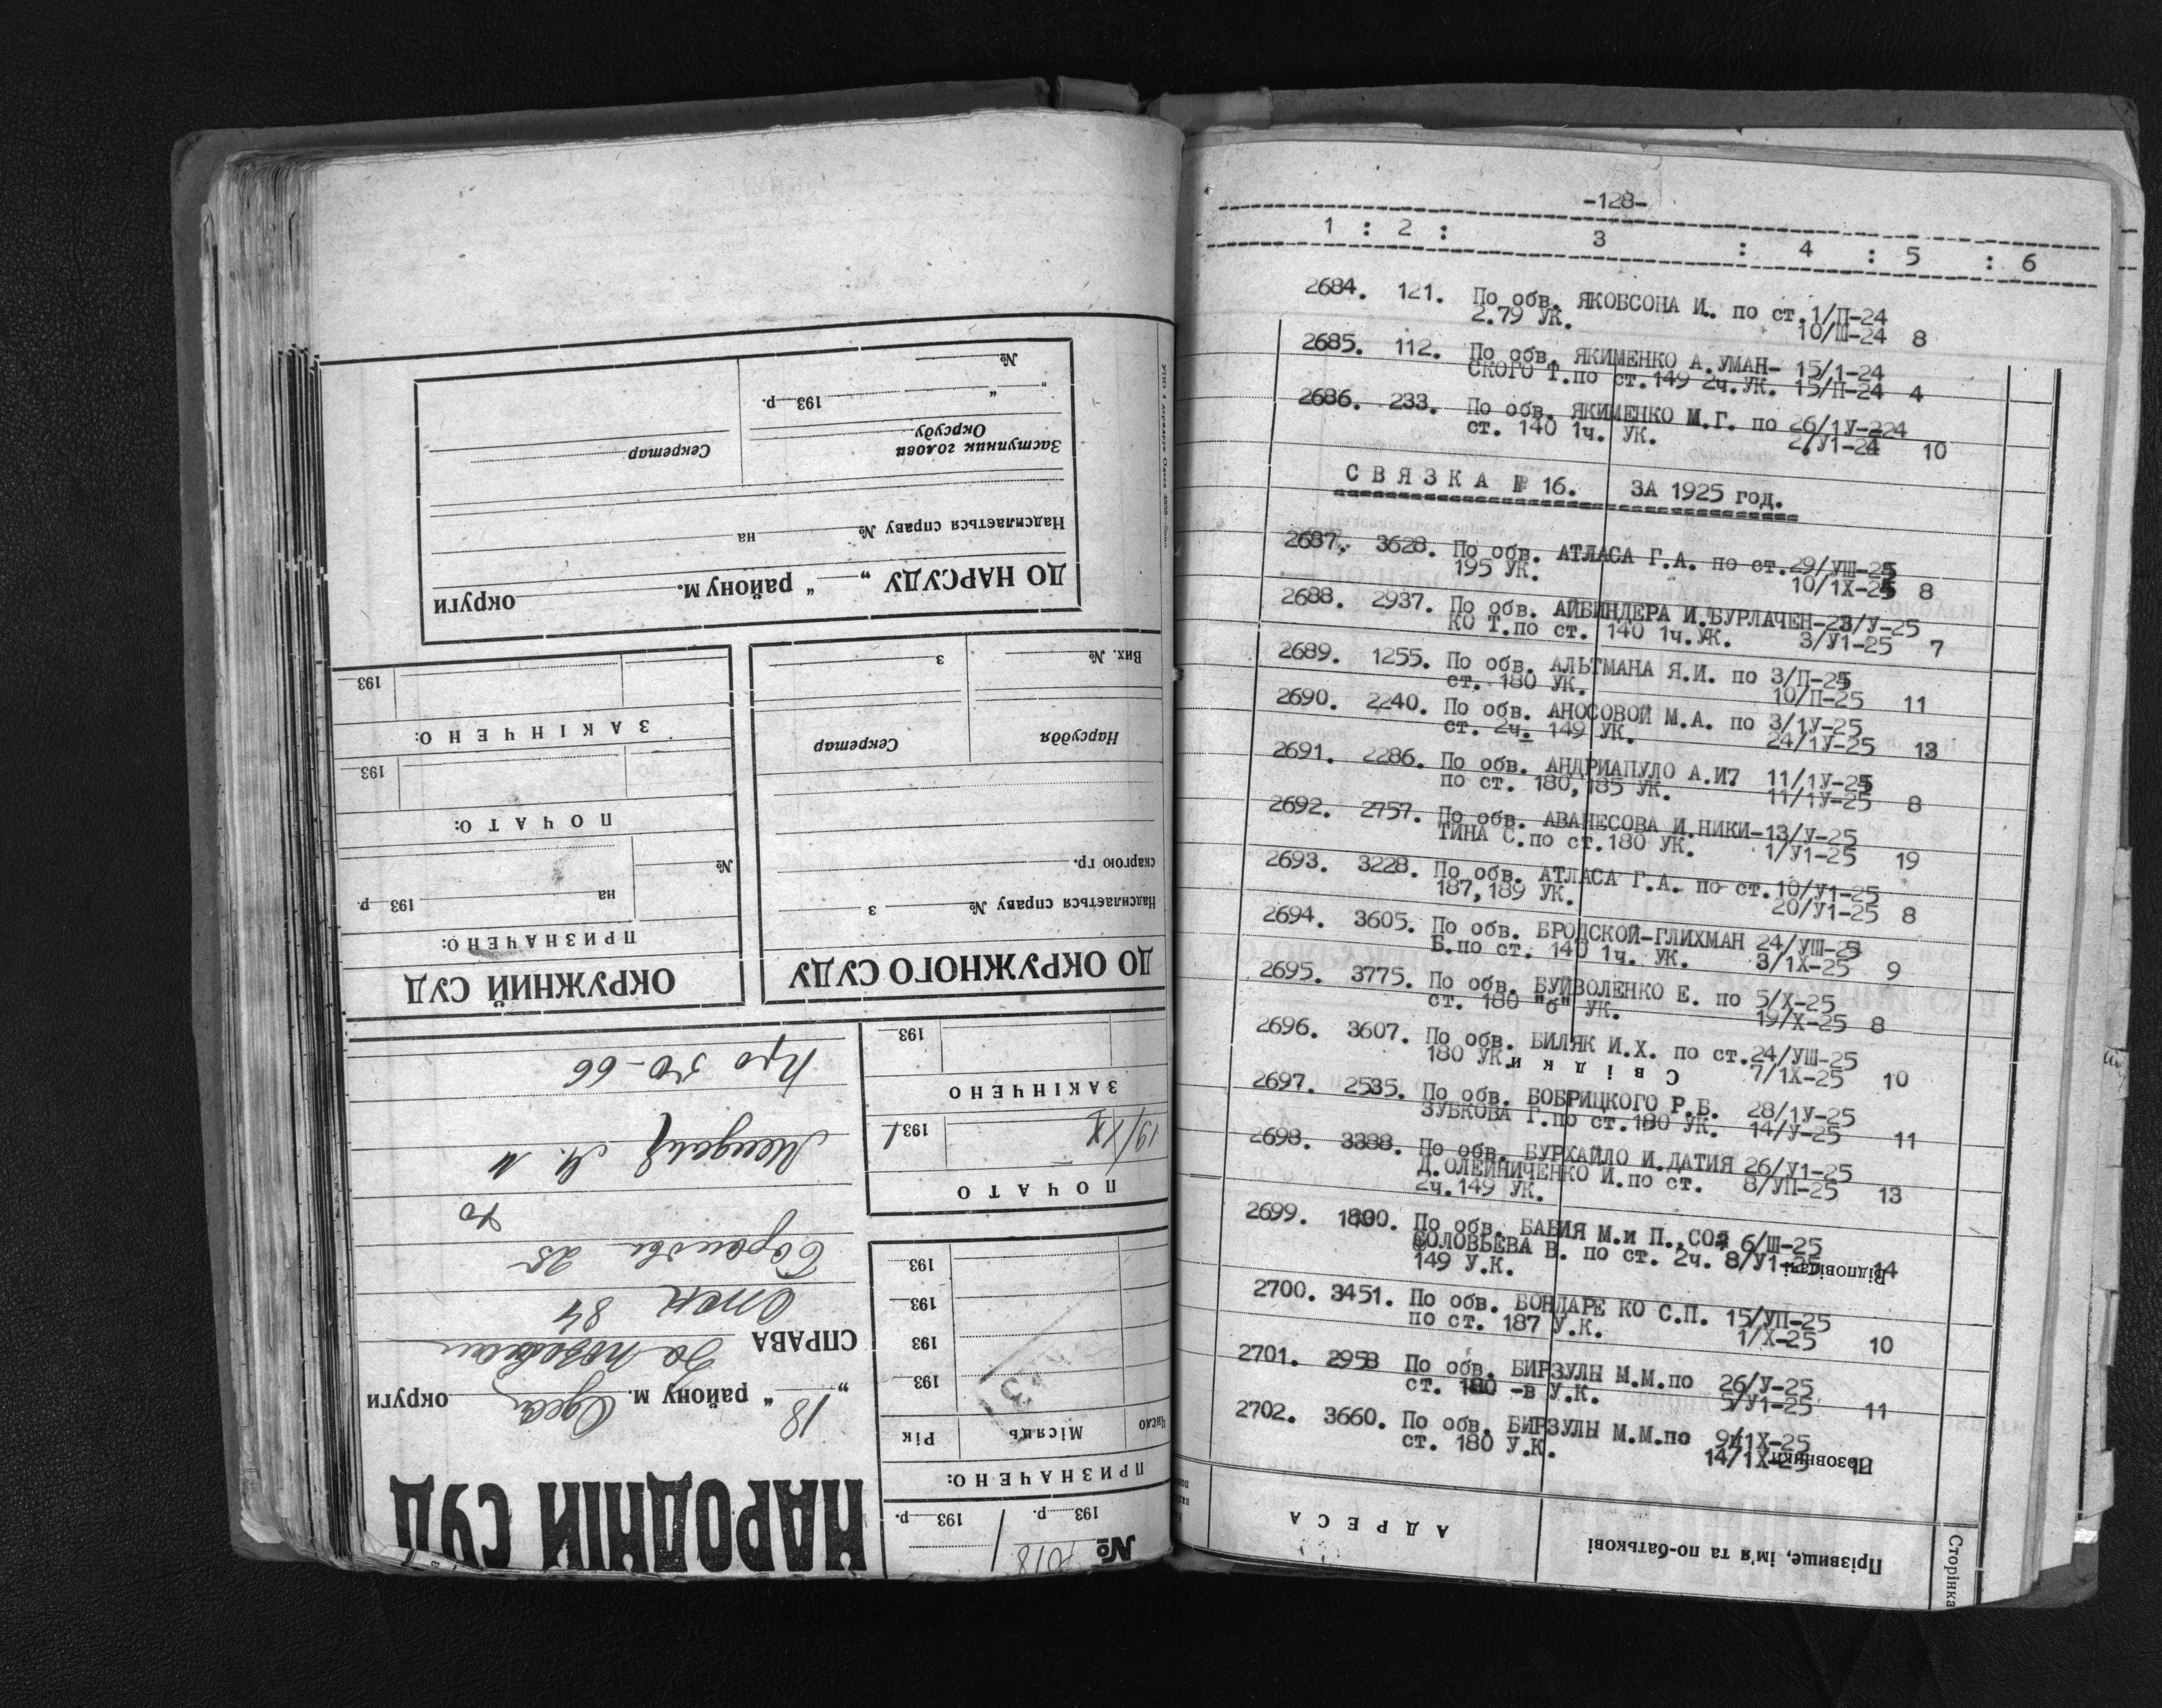 -128-
1 : 2 : 3 : 4 : 5 : 6
2684. 121. По обв. ЯКОБСОНА И. по ст.1/П-24
2.79 УК. 10/Ш-24 8
2685. 112. По обв. ЯКИМЕНКО А.УМАН- 15/1-24
СКОГО Т.по ст.149 2ч.УК. 15/П-24 4
2686. 233. По обв. ЯКИМЕНКО М.Г. по 26/1У-224
ст. 140 1ч. УК. 2/У1-24 10
СВЯЗКА № 16. ЗА 1925 год.
2687. 3628. По обв. АТЛАСА Г.А. по ст.29/УШ-25
195 УК. 10/1Х-25 8
2688. 2937. По обв. АЙБИНДЕРА И.БУРЛАЧЕН-23/У-25
КО Т.по ст. 140 1ч.УК. 3/У1-25 7
2689. 1255. По обв. АЛЬТМАНА Я.И. по 3/П-25
ст. 180 УК. 10/П-25 11
2690. 2240. По обв. АНОСОВОЙ М.А. по 3/1У-25
ст. 2ч. 149 УК. 24/1У-25 13
2691. 2286. По обв. АНДРИАПУЛО А.И7 11/1У-25
по ст. 180,185 УК. 11/1У-25 8
2692. 2757. По обв. АВАНЕСОВА И.НИКИ-13/У-25
ТИНА С.по ст.180 УК. 1/У1-25 19
2693. 3228. По обв. АТЛАСА Г.А. по ст.10/У1-25
187,189 УК. 20/У1-25 8
2694. 3605. По обв. БРОДСКОЙ-ГЛИХМАН 24/УШ-25
Б.по ст. 140 1ч. УК. 3/1Х-25 9
2695. 3775. По обв. БУЙВОЛЕНКО Е. по 5/Х-25
ст. 180 "б" УК. 19/Х-25 8
2696. 3607. По обв. БИЛЯК И.Х. по ст.24/УШ-25
180 УК. 7/1Х-25 10
Свідки
2697. 2535. По обв. БОБРИЦКОГО Р.Б. 28/1У-25
ЗУБКОВА Г.по ст.180 УК. 14/У-25 11
2698. 3388. По обв. БУРХАЙЛО И.ДАТИЯ 26/У1-25
Д.ОЛЕЙНИЧЕНКО И.по ст. 8/УП-25 13
2ч.149 УК.
2699. 1800. По обв. БАБИЯ М.и П.,СО 6/Ш-25
СОЛОВЬЕВА В. по ст. 2ч. 8/У1-25 14
149 У.К.
Відповідачі
2700. 3451. По обв. БОНДАРЕ КО С.П. 15/УП-25
по ст. 187 У.К. 1/Х-25 10
2701. 2958 По обв. БИРЗУЛЫ М.М.по 26/У-25
ст. 180 -в У.К. 5/У1-25 11
2702. 3660. По обв. БИРЗУЛЫ М.М.по 9/1Х-25
ст. 180 У.К. 14/1Х-25
Позовники
АДРЕСА
Прізвище, ім'я та по-батькові
Сторінка
№ 193 р. 193 р.
ПРИЗНАЧЕНО:
Число Місяць Рік
193
193
193
193
ПОЧАТО
19/IX 1931
ЗАКІНЧЕНО
193
НАРОДНІЙ СУД
18 " району м. Одеса округи
СПРАВА
84
25
ДО ОКРУЖНОГО СУДУ
Надсилається справу № з
скаргою гр.
Нарсуддя Секретар
Вих. № з
ОКРУЖНИЙ СУД
ПРИЗНАЧЕНО:
№ на 193 р.
ПОЧАТО:
193
ЗАКІНЧЕНО:
193
ДО НАРСУДУ " " району м. округи
Надсилається справу № на
Заступник голови
Окрсуду Секретар
" " 193 р.
№